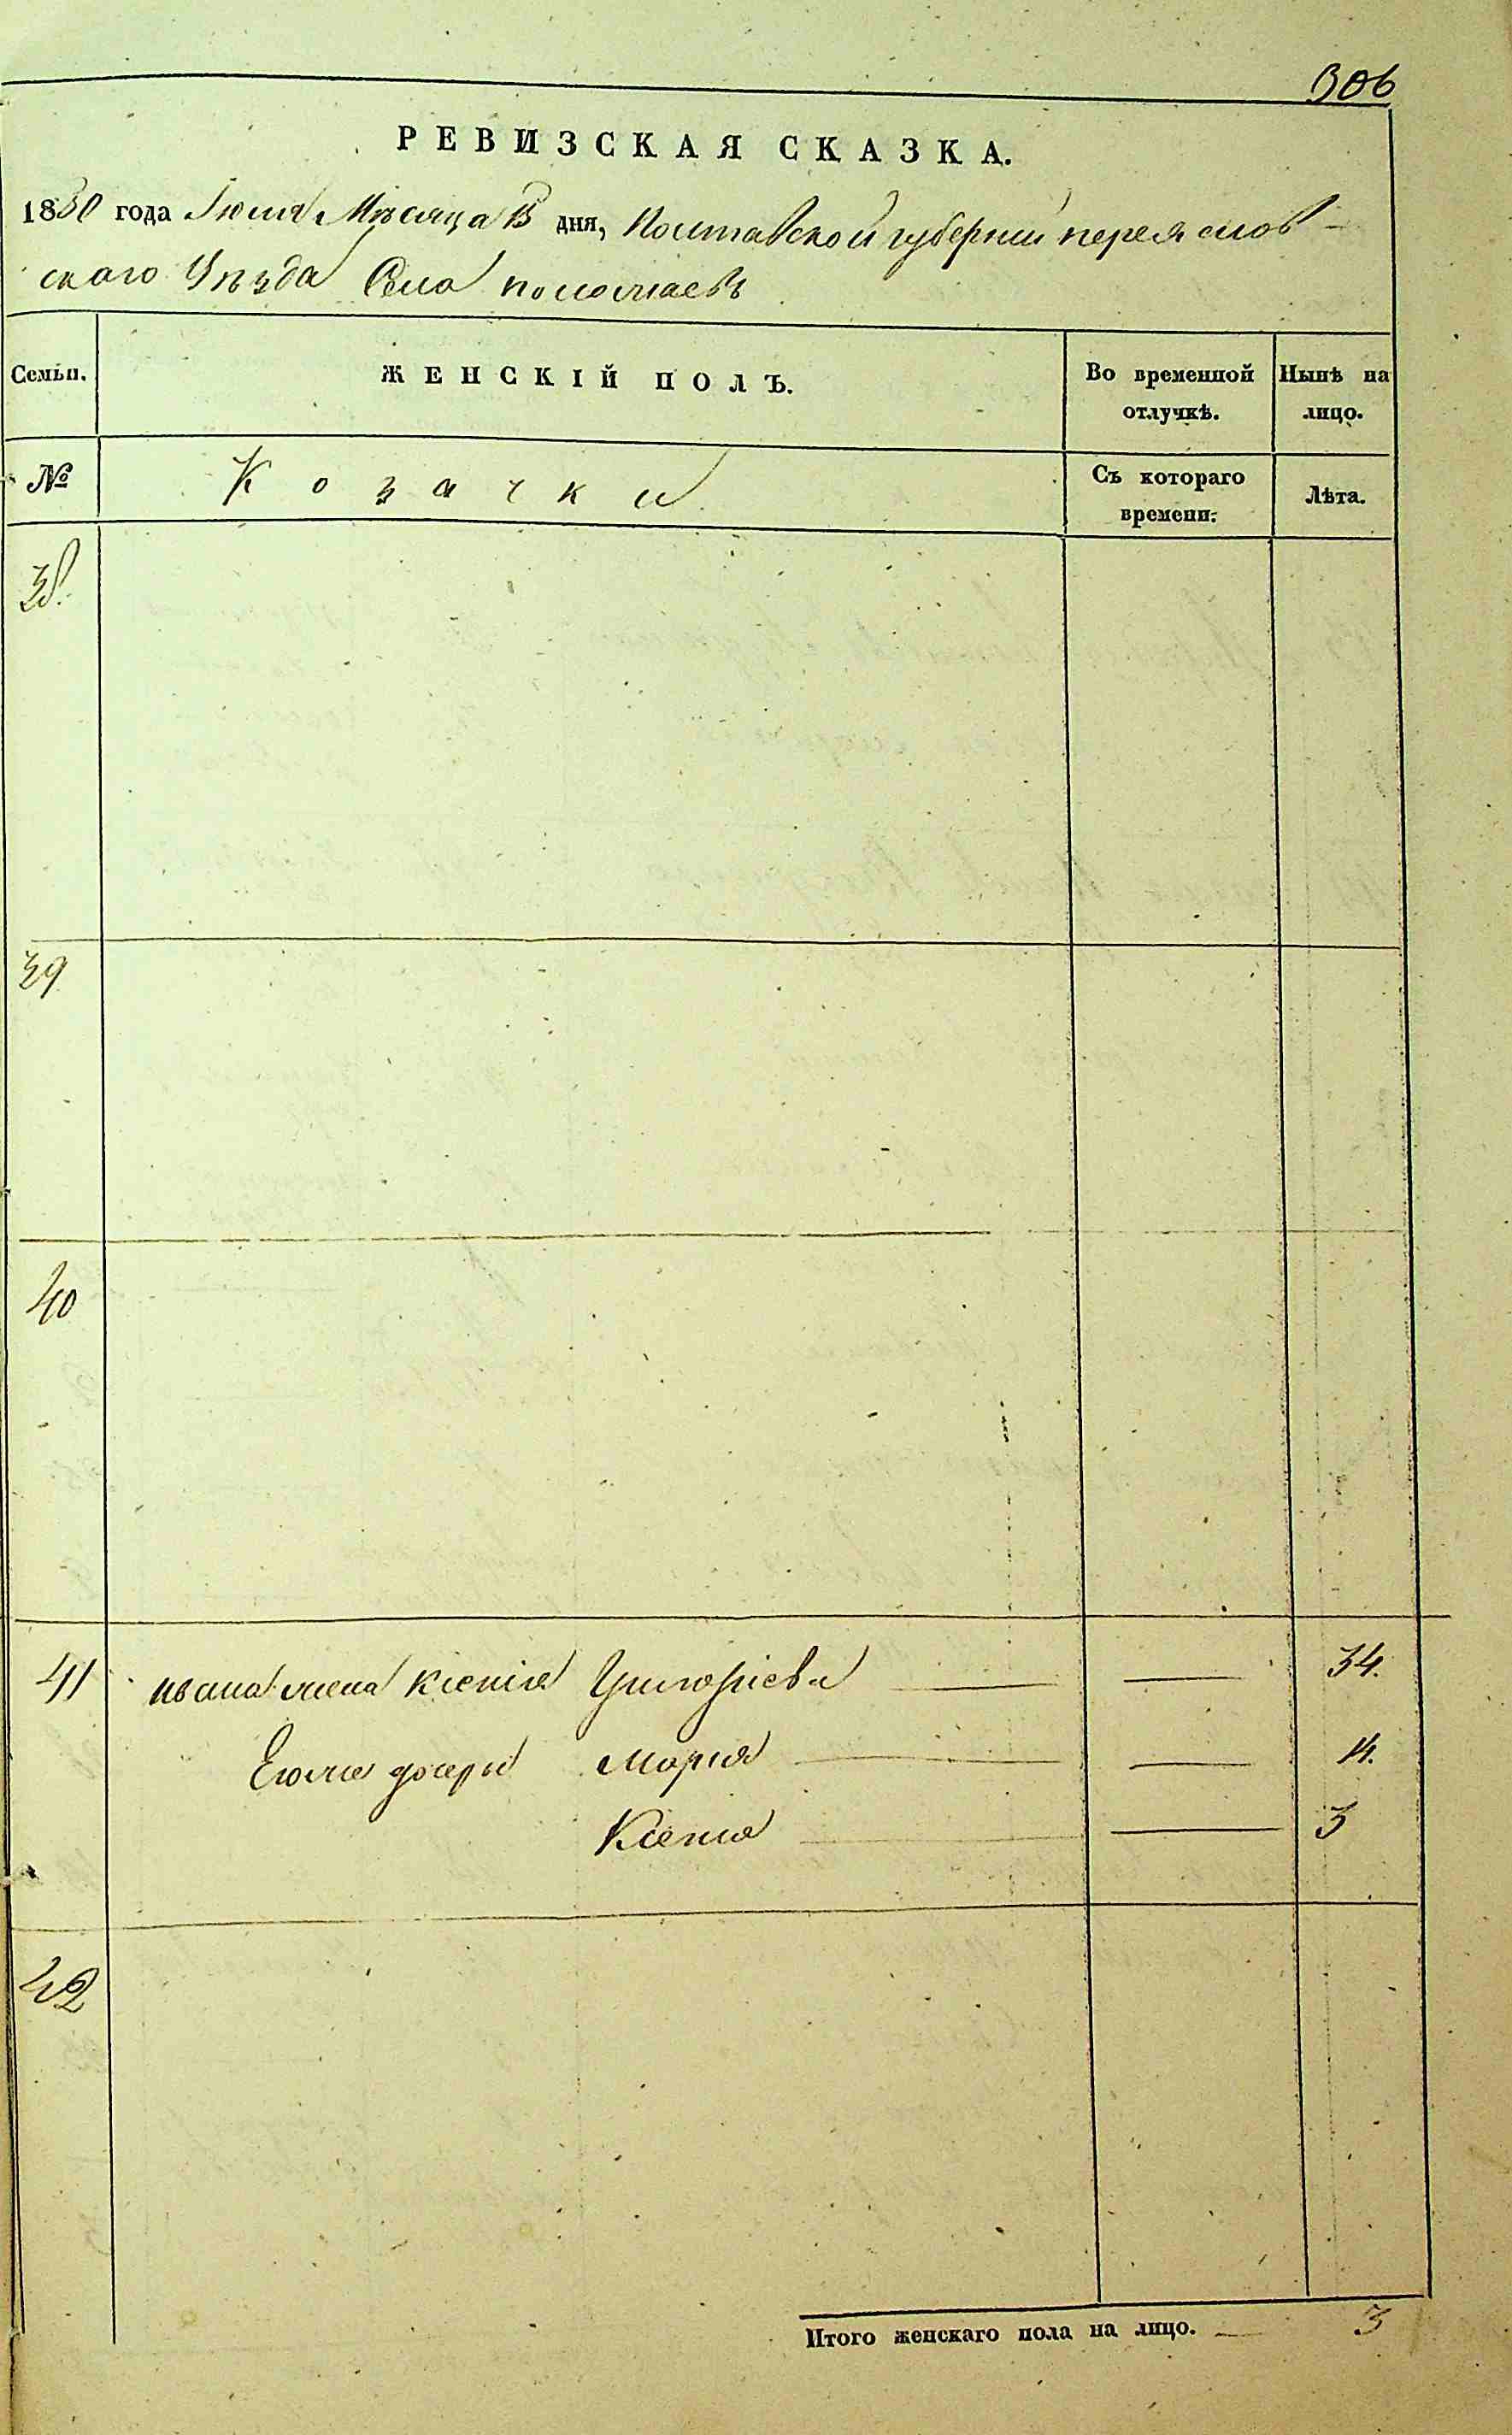 306
РЕВИЗСКАЯ СКАЗКА.
1850 года Іюля Мѣсяца 15 дня, Полтавской губерніи переяслов-
скаго Уѣзда Села положаевъ
Семьи. ЖЕНСКІЙ ПОЛЪ. Во временной отлучкѣ. Нынѣ на лицо.
№ Козачки Съ котораго времени. Лѣта.
38.
39
40
41 ивана жена Ксенія Григоріева — — 34.
Егоже дочери Марія — — 4.
Ксенія — — 3
42
Итого женскаго пола на лицо. — 3